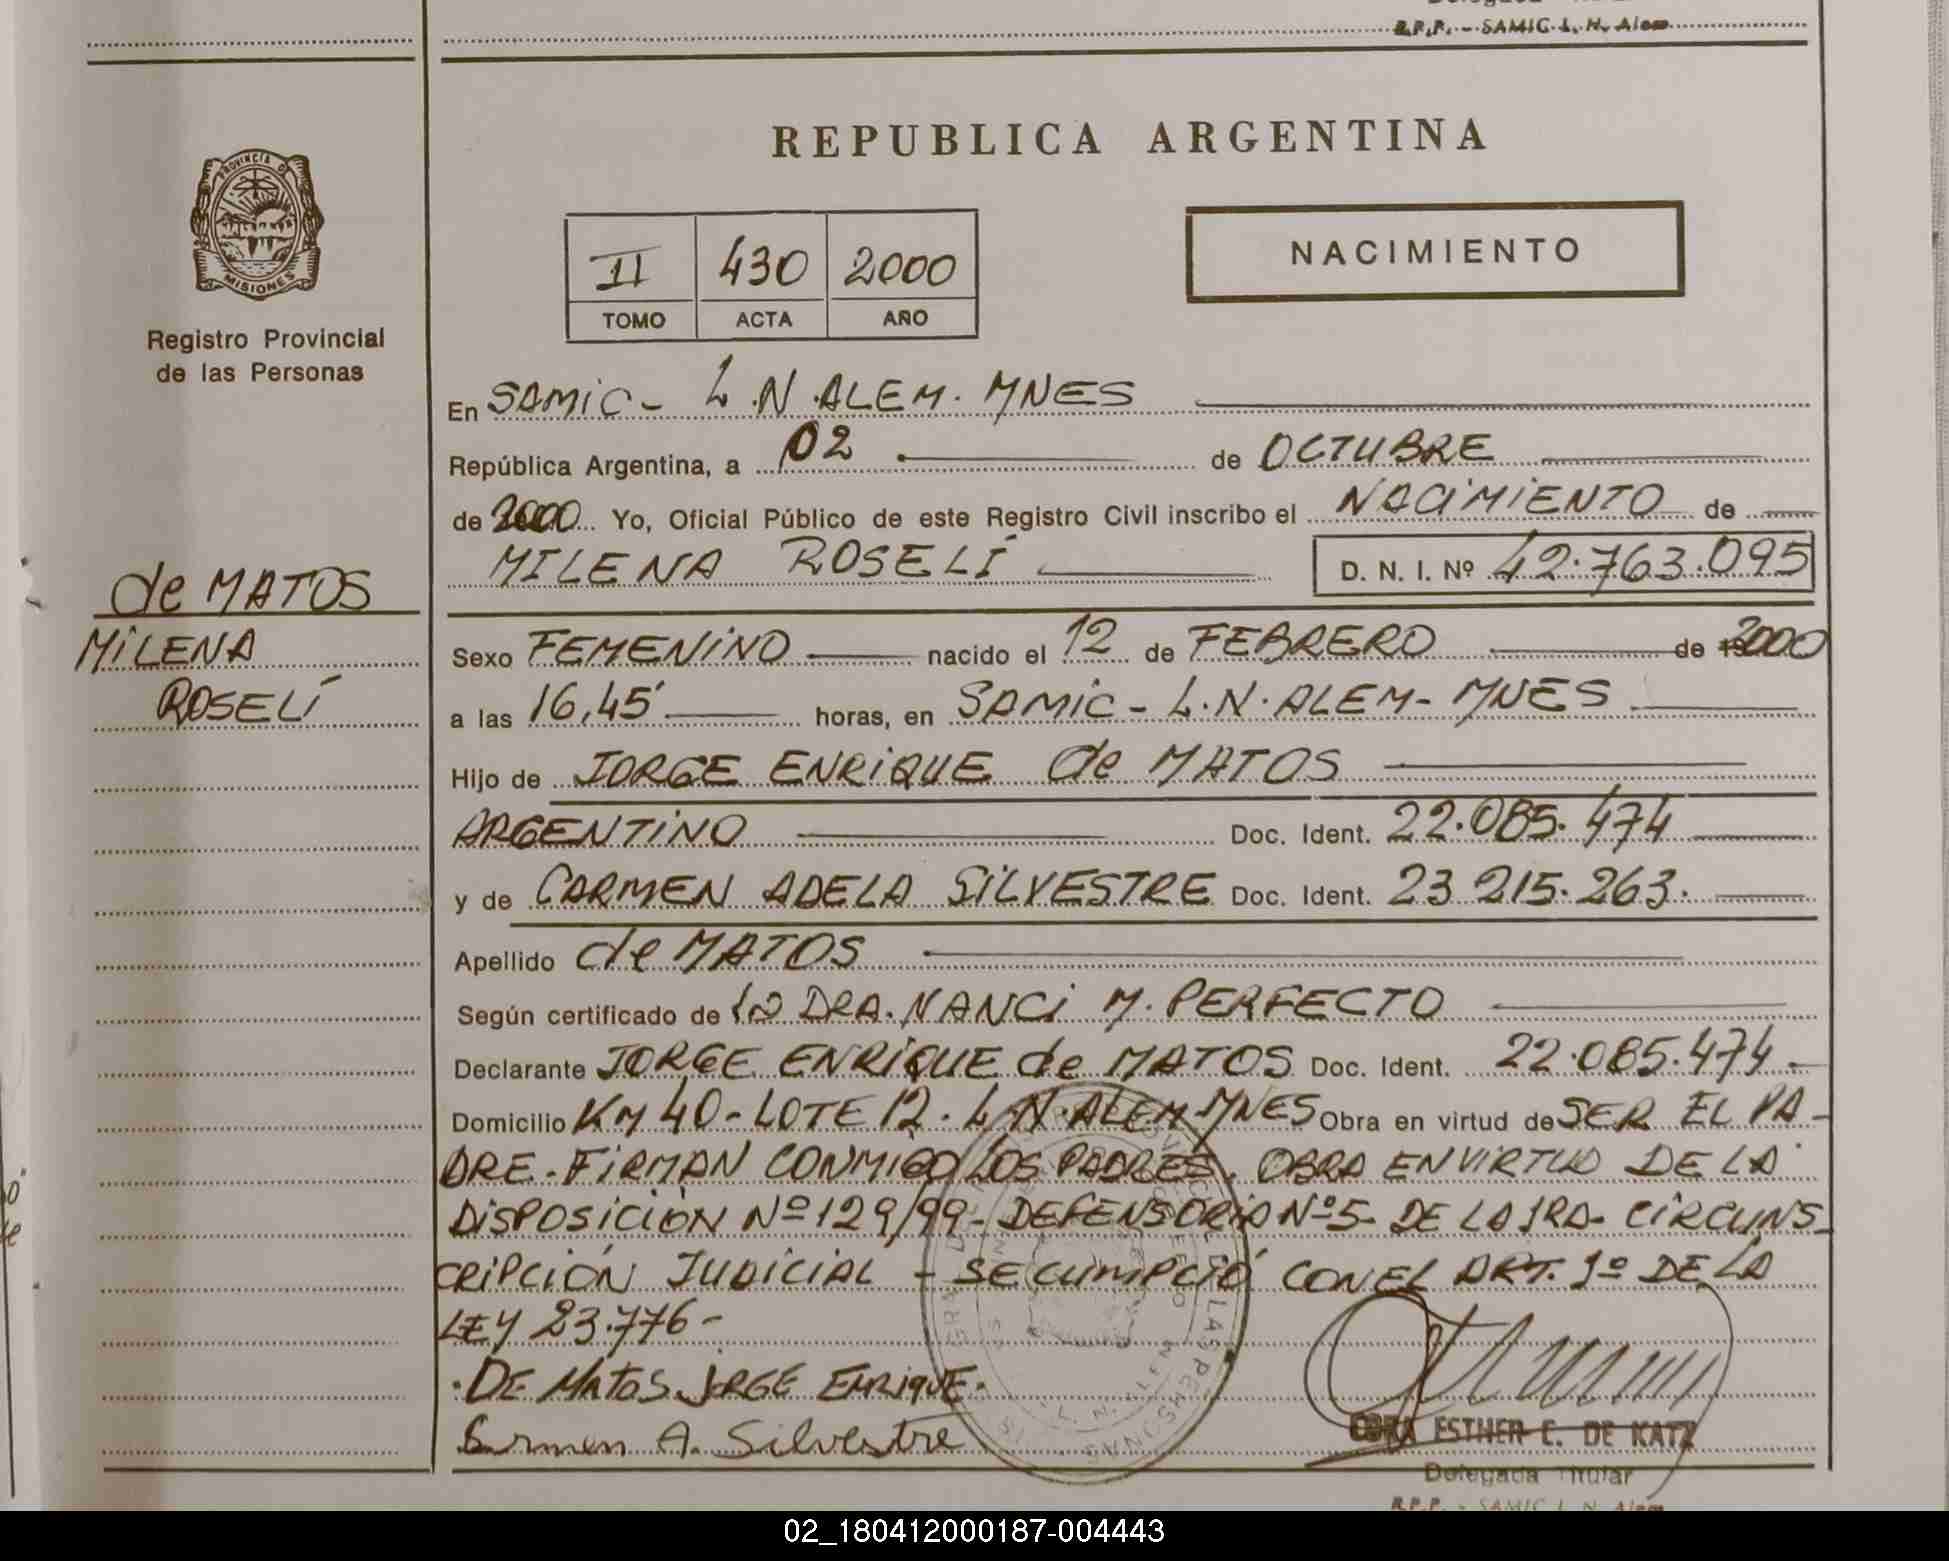 R.P.P. - SAMIC L. N. Alem
PROVINCIA D MISIONES
Registro Provincial
de las Personas
de MATOS
MILENA
ROSELÍ
REPUBLICA ARGENTINA
II 430 2000
TOMO ACTA AÑO
NACIMIENTO
En SAMIC - L.N.ALEM. MNES
República Argentina, a 02 de OCTUBRE
de 2000 Yo, Oficial Público de este Registro Civil inscribo el NACIMIENTO de
MILENA ROSELÍ D. N. I. Nº 42.763.095
Sexo FEMENINO nacido el 12 de FEBRERO de 2000
a las 16,45' horas, en SAMIC - L.N.ALEM - MNES
Hijo de JORGE ENRIQUE de MATOS
ARGENTINO Doc. Ident. 22.085.474
y de CARMEN ADELA SILVESTRE Doc. Ident. 23 215.263.
Apellido de MATOS
Según certificado de la DRA. NANCI M. PERFECTO
Declarante JORGE ENRIQUE de MATOS Doc. Ident. 22.085.474 -
Domicilio KM 40 - LOTE 12. L.N.ALEM.MNES Obra en virtud de SER EL PA-
DRE. FIRMAN CONMIGO LOS PADRES. OBRA EN VIRTUD DE LA
DISPOSICIÓN Nº 129/99 - DEFENSORIA Nº5 - DE LA 1RA. CIRCUNS-
CRIPCIÓN JUDICIAL - SE CUMPLIÓ CON EL ART. 1º DE LA
LEY 23.776 -
. DE MATOS JORGE ENRIQUE.
Carmen A. Silvestre
ESTHER C. DE KATZ
Delegada Titular
R.P.P. - SAMIC L. N. Alem
02_180412000187-004443